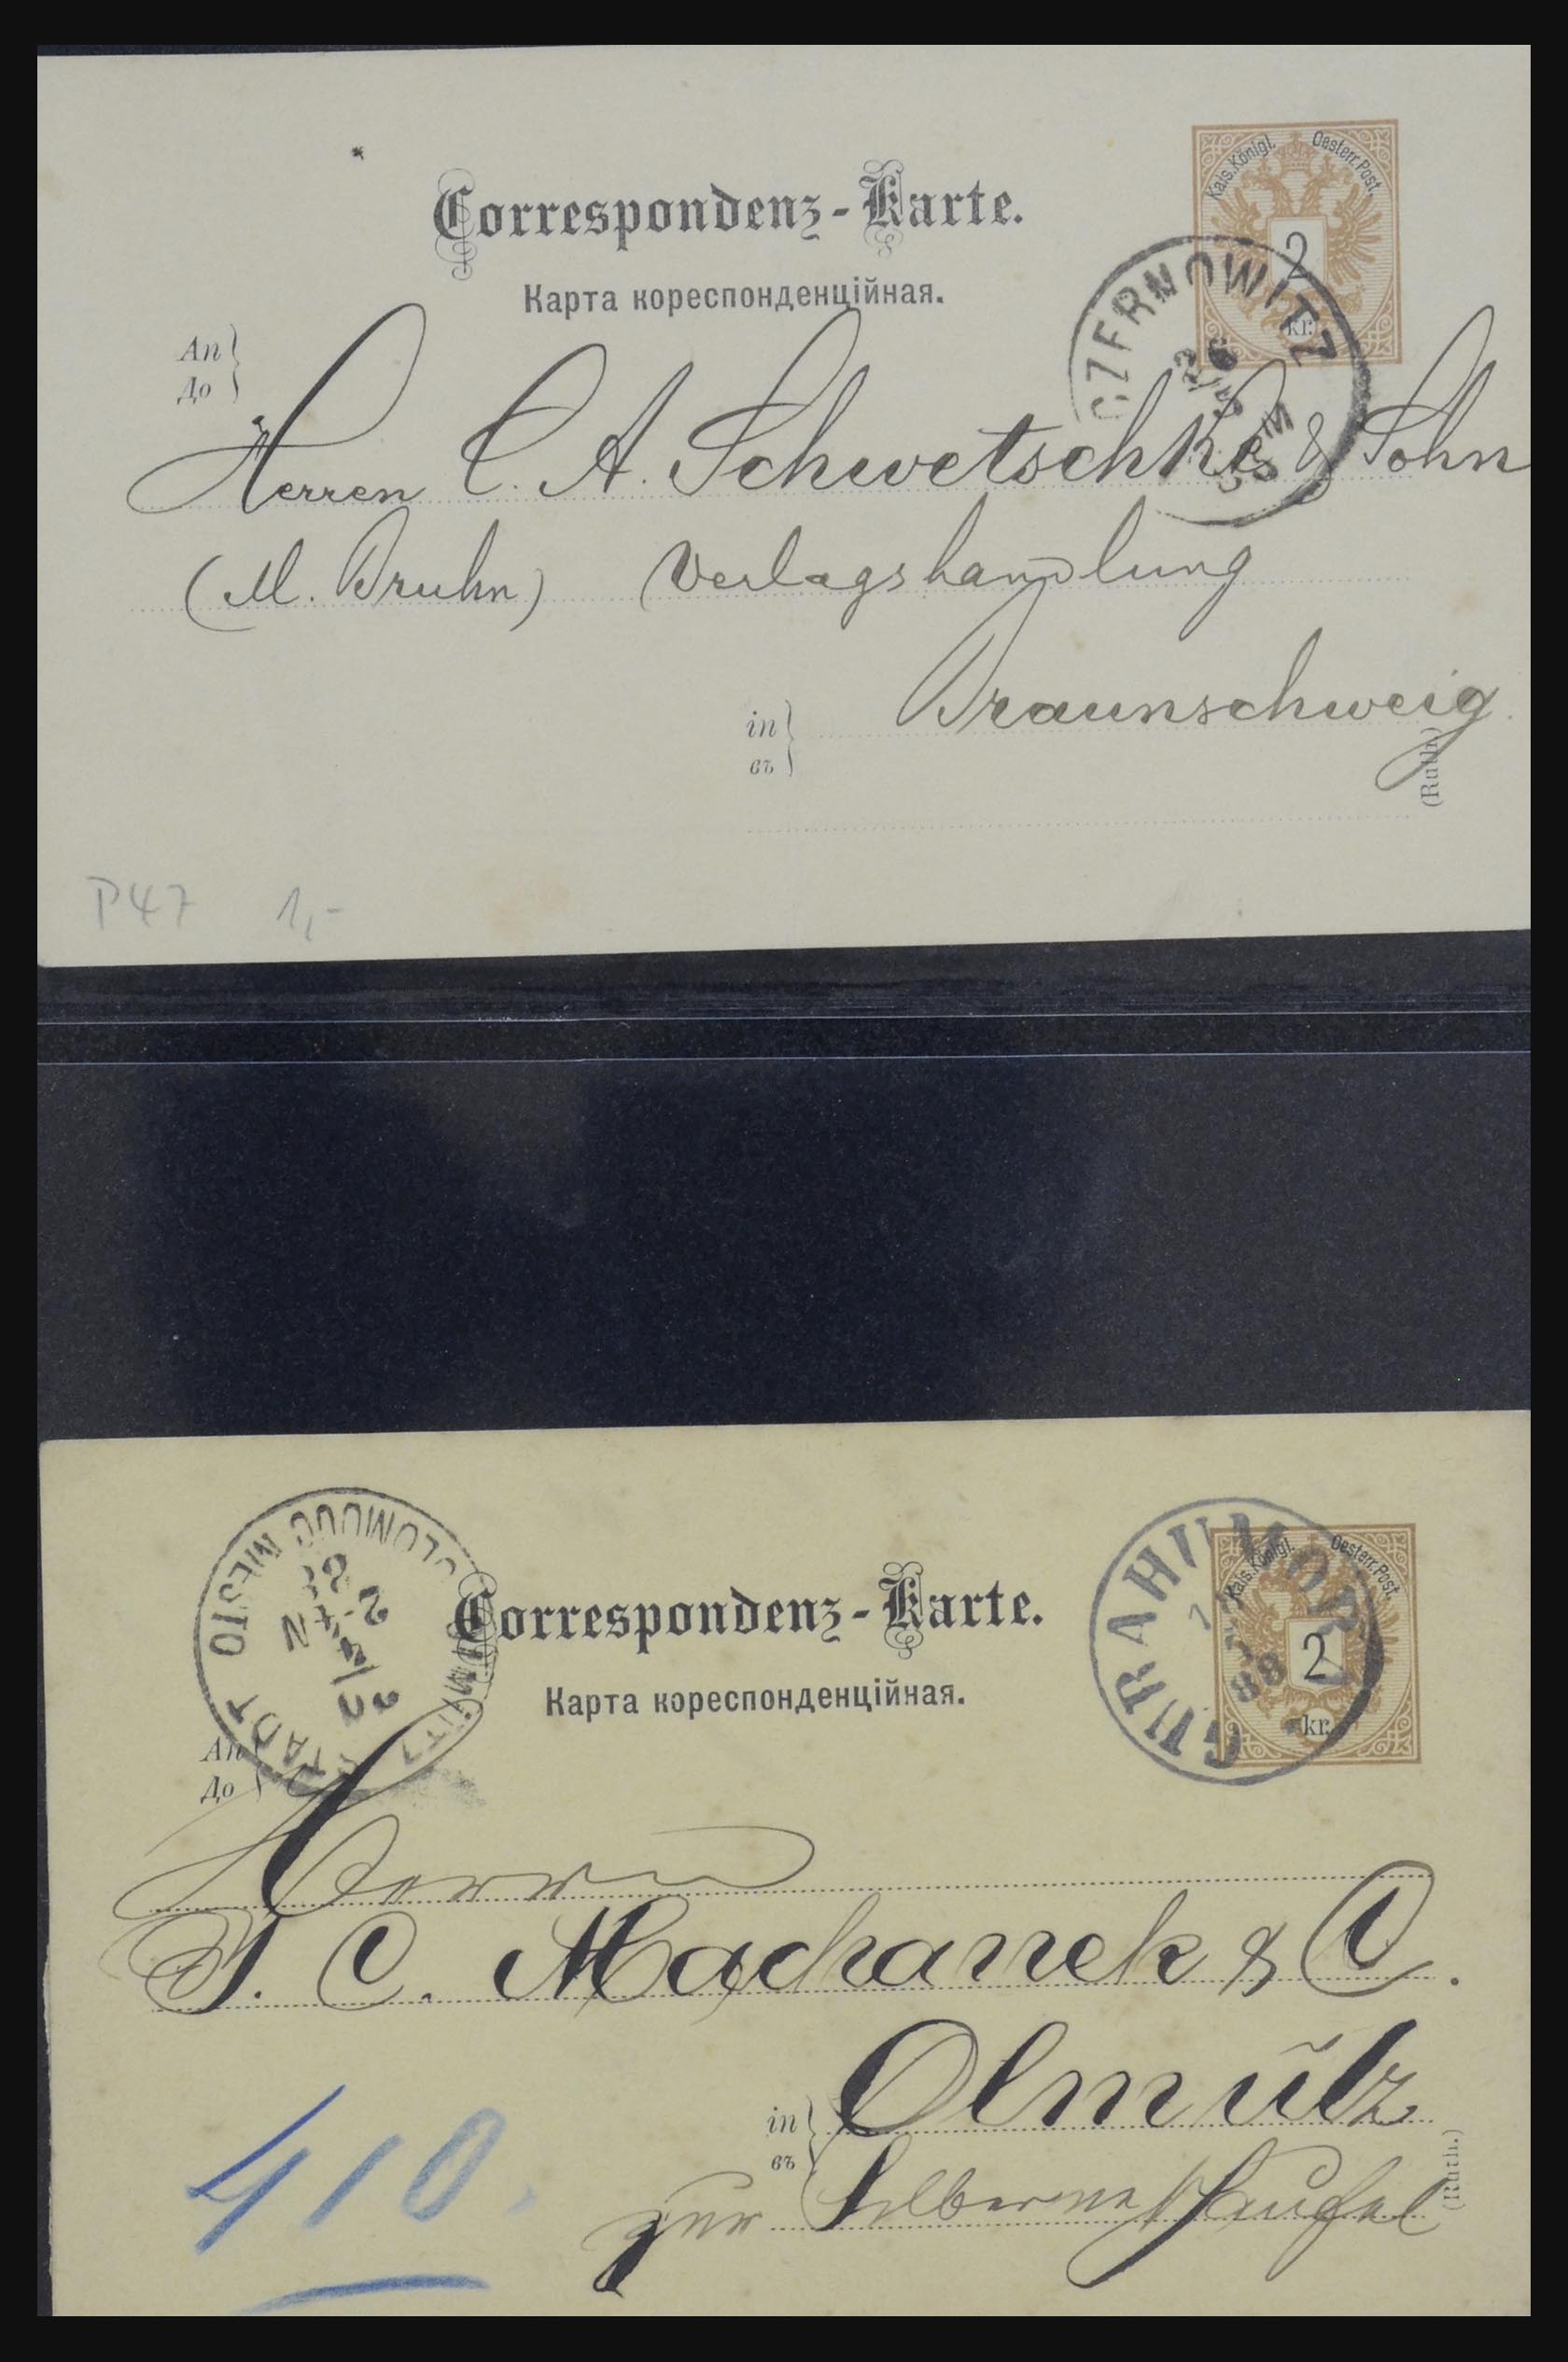 Kais. Königl. Oesterr. Post.
2
kr.
Correspondenz-Karte.
Карта кореспонденційная.
CZERNOWITZ
An
До
Herren C. A. Schwetschke & Sohn
(M. Bruhn) Verlagshandlung
in Braunschweig
въ
(Ruth.)
P47 1,-
Kais. Königl. Oesterr. Post.
2
kr.
GURAHUMORA
88
OLOMOUC MĚSTO
STADT
Correspondenz-Karte.
Карта кореспонденційная.
An
До
Herrn
J. C. Machanek & C.
in Olmütz
въ
zur Silbernen Schaufel
(Ruth.)
410.